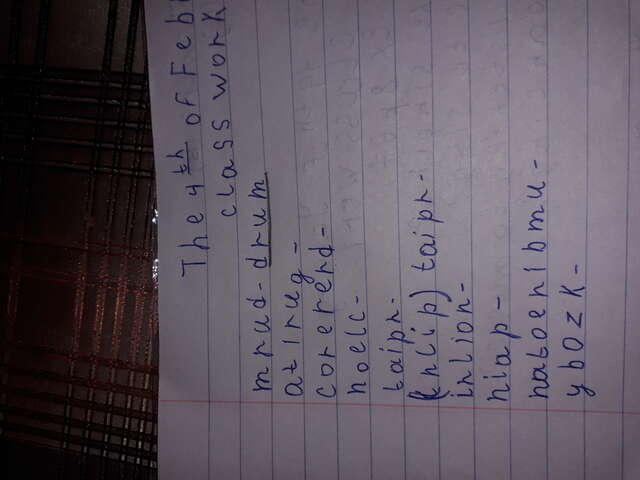 The 4th of Feb
class work
mrud - drum
atirug -
corererd -
noelc -
taipn -
(nlip) taipn -
inlion -
niap -
natoeribmu -
ybozk -